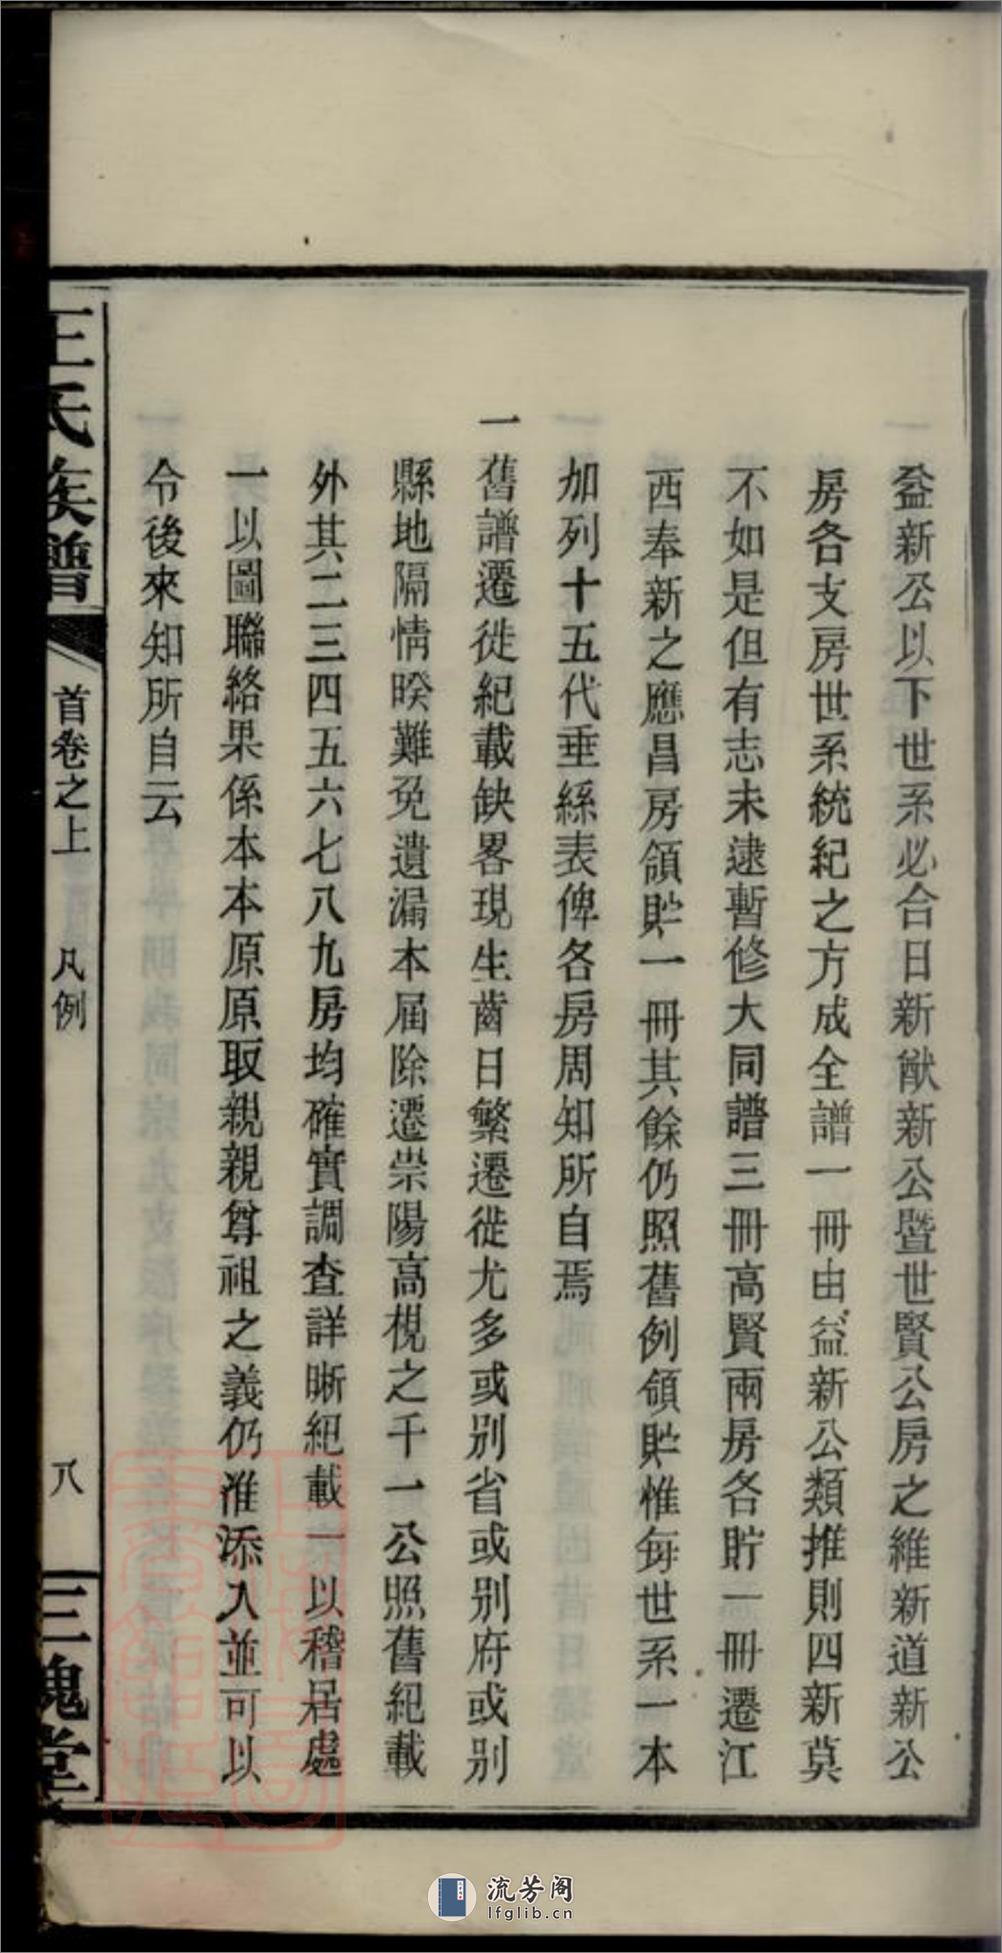 益新公以下世系必合日新猷新公暨世賢公房之維新道新公
房各支房世系統紀之方成全譜一冊由益新公類推則四新莫
不如是但有志未逮暫修大同譜三冊高賢兩房各貯一冊遷江
西奉新之應昌房領貯一冊其餘仍照舊例領貯惟每世系一本
加列十五代垂絲表俾各房周知所自焉
一舊譜遷徙紀載缺畧現生齒日繁遷徙尤多或別省或別府或別
縣地隔情暌難免遺漏本屆除遷崇陽高梘之千一公照舊紀載
外其二三四五六七八九房均確實調查詳晰紀載一以稽居處
一以圖聯絡果係本本原原取親親尊祖之義仍准添入並可以
令後來知所自云
王氏族譜 首卷之上 凡例 八 三槐堂
流芳阁
lfglib.cn